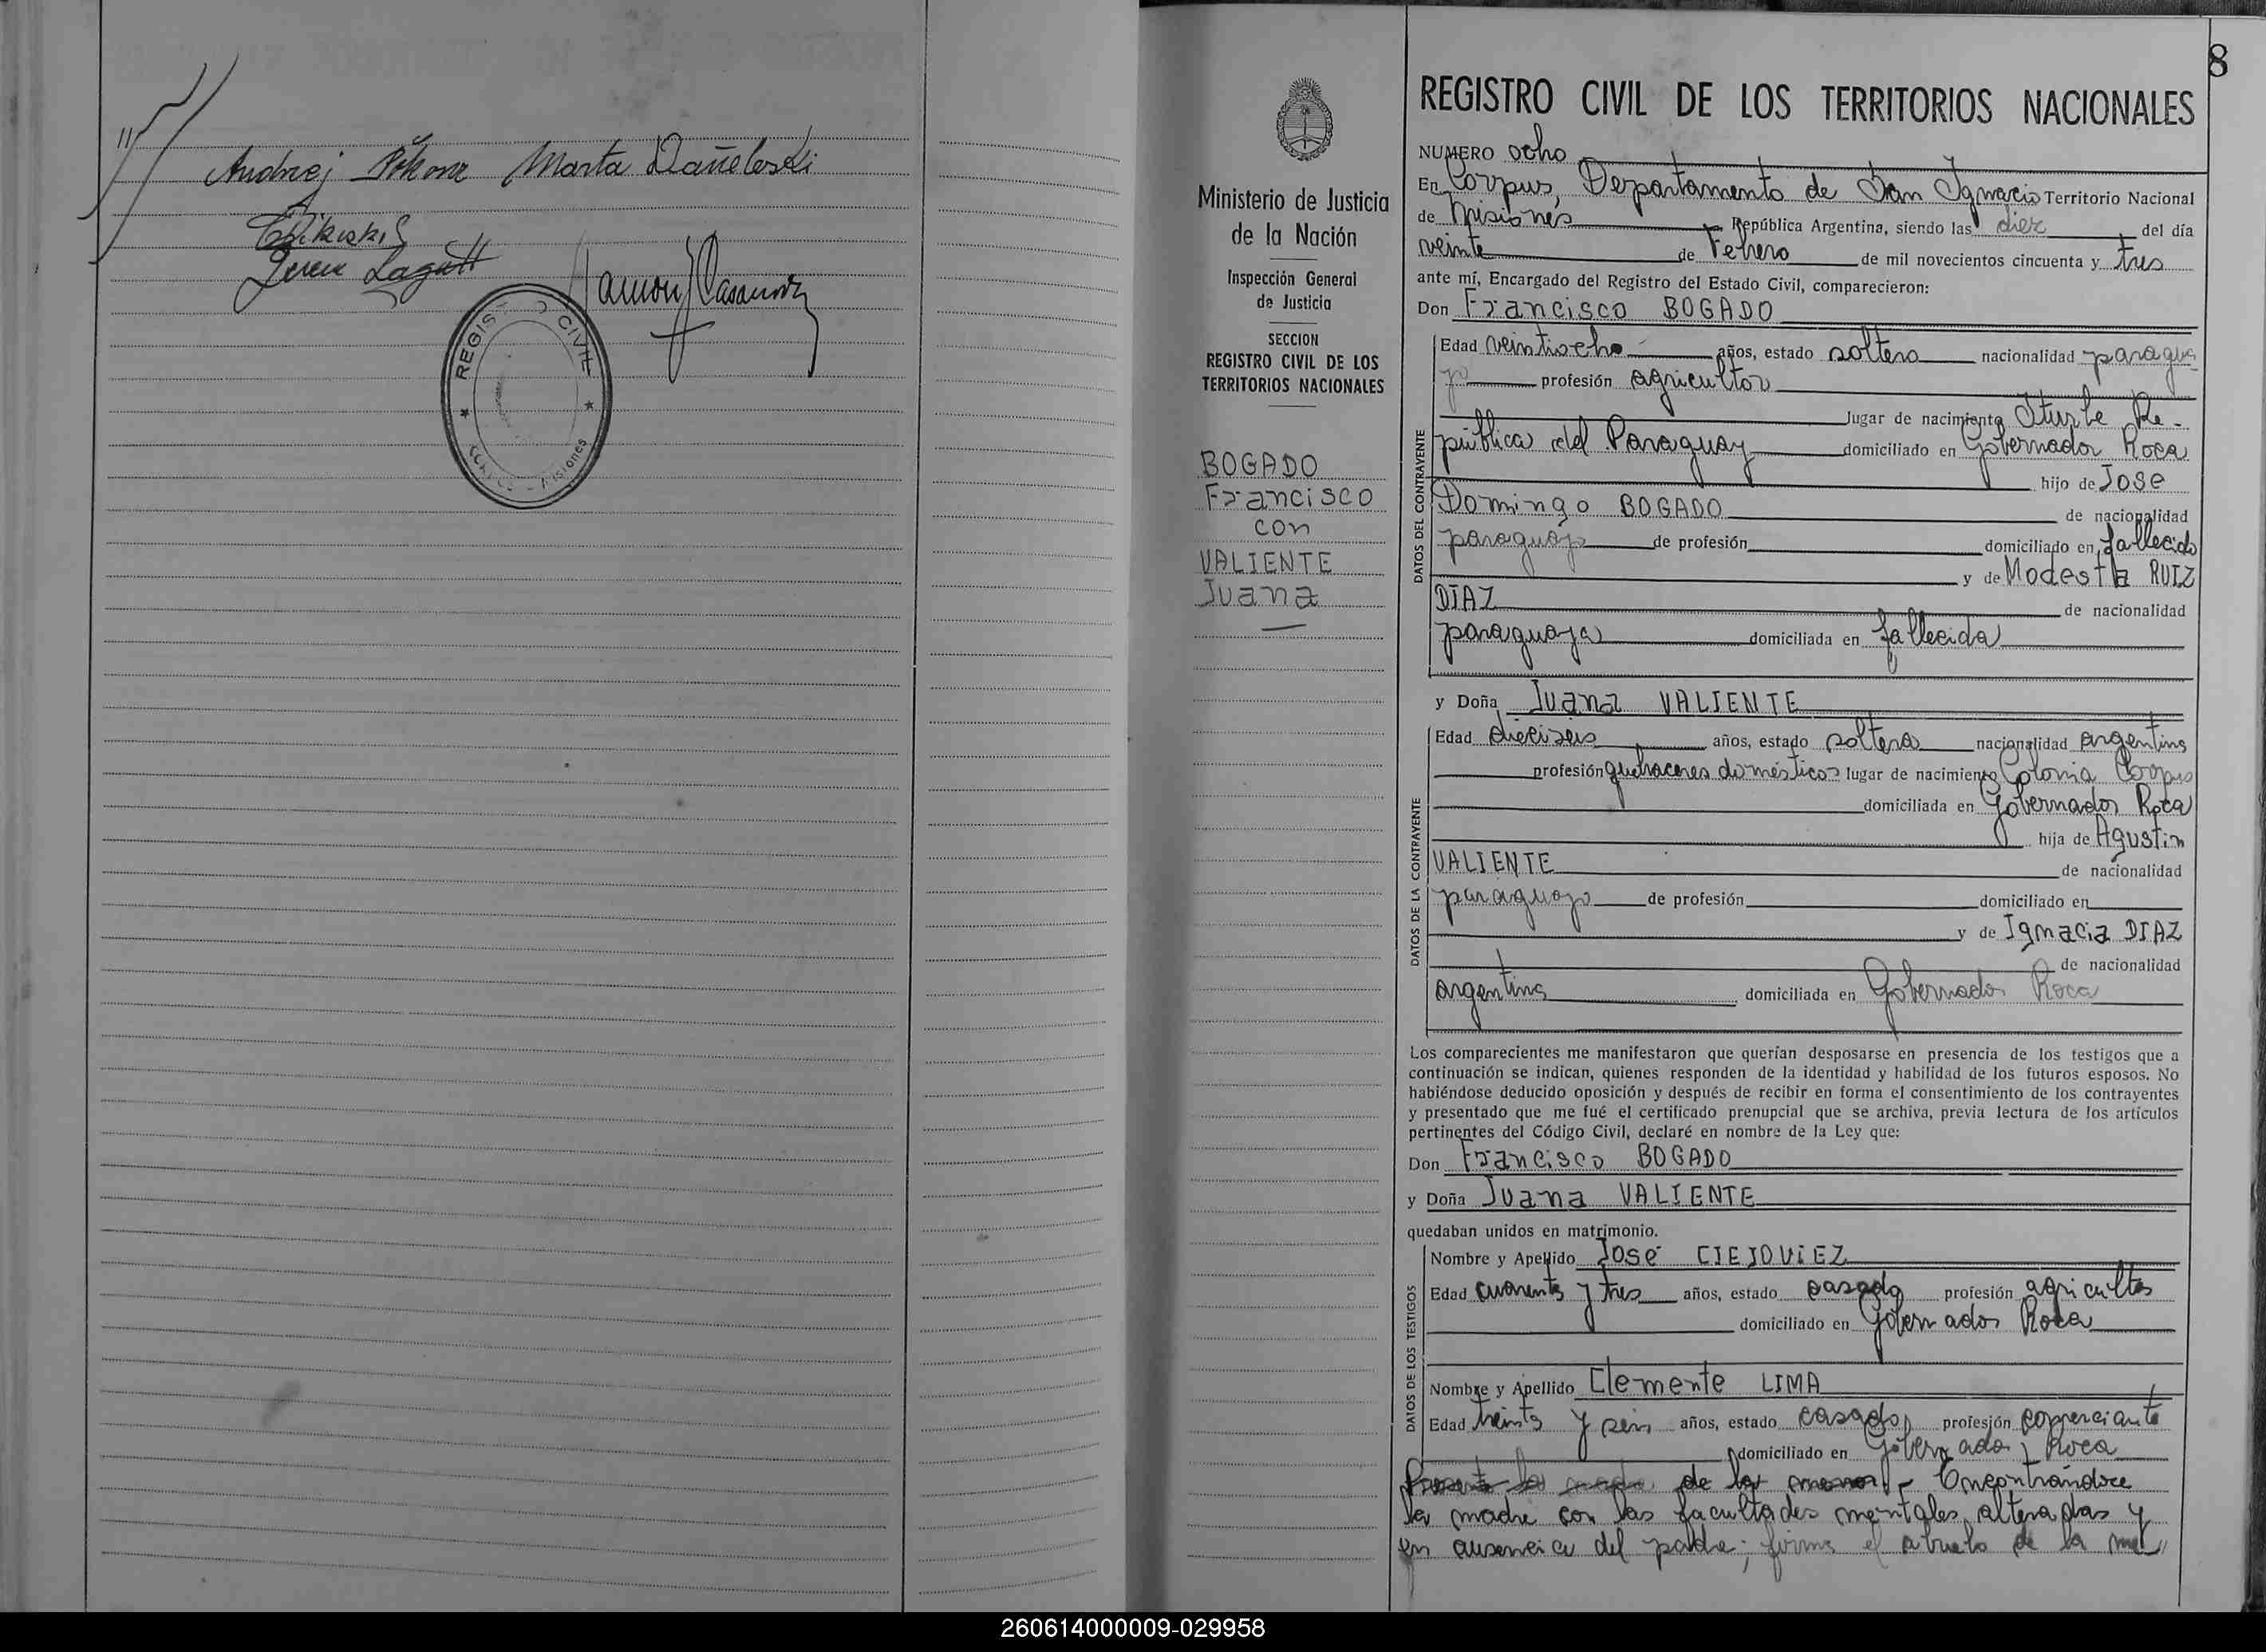 Andrzej Marta
REGISTRO CIVIL
Misiones
8
Ministerio de Justicia
de la Nación
Inspección General
de Justicia
SECCION
REGISTRO CIVIL DE LOS
TERRITORIOS NACIONALES
BOGADO
Francisco
con
VALIENTE
Juana
REGISTRO CIVIL DE LOS TERRITORIOS NACIONALES
NUMERO ocho
En Corpus, Departamento de San Ignacio Territorio Nacional
de Misiones República Argentina, siendo las diez del día
veinte de Febrero de mil novecientos cincuenta y tres
ante mí, Encargado del Registro del Estado Civil, comparecieron:
Don Francisco BOGADO
DATOS DEL CONTRAYENTE
Edad veintiocho años, estado soltero nacionalidad paragua
yo profesión agricultor
Jugar de nacimiento Iturbe Re-
pública del Paraguay domiciliado en Gobernador Roca
hijo de Jose
Domingo BOGADO de nacionalidad
paraguayo de profesión domiciliado en fallecido
y de Modesta RUIZ
DIAZ de nacionalidad
paraguaya domiciliada en fallecida
y Doña Juana VALIENTE
DATOS DE LA CONTRAYENTE
Edad dieciseis años, estado soltera nacionalidad argentina
profesión quehaceres domésticos lugar de nacimiento Colonia Corpus
domiciliada en Gobernador Roca
hija de Agustin
VALIENTE de nacionalidad
paraguayo de profesión domiciliado en
y de Ignacia DIAZ
de nacionalidad
argentina domiciliada en Gobernador Roca
Los comparecientes me manifestaron que querían desposarse en presencia de los testigos que a
continuación se indican, quienes responden de la identidad y habilidad de los futuros esposos. No
habiéndose deducido oposición y después de recibir en forma el consentimiento de los contrayentes
y presentado que me fué el certificado prenupcial que se archiva, previa lectura de los artículos
pertinentes del Código Civil, declaré en nombre de la Ley que:
Don Francisco BOGADO
y Doña Juana VALIENTE
quedaban unidos en matrimonio.
DATOS DE LOS TESTIGOS
Nombre y Apellido José CIEJOVIEZ
Edad cuarenta y tres años, estado casado profesión agricultor
domiciliado en Gobernador Roca
Nombre y Apellido Clemente LIMA
Edad treinta y seis años, estado casado, profesión comerciante
domiciliado en Gobernador Roca
de la menor - Encontrándose
la madre con las facultades mentales alteradas y
en ausencia del padre; firma el abuelo de la me//
260614000009-029958